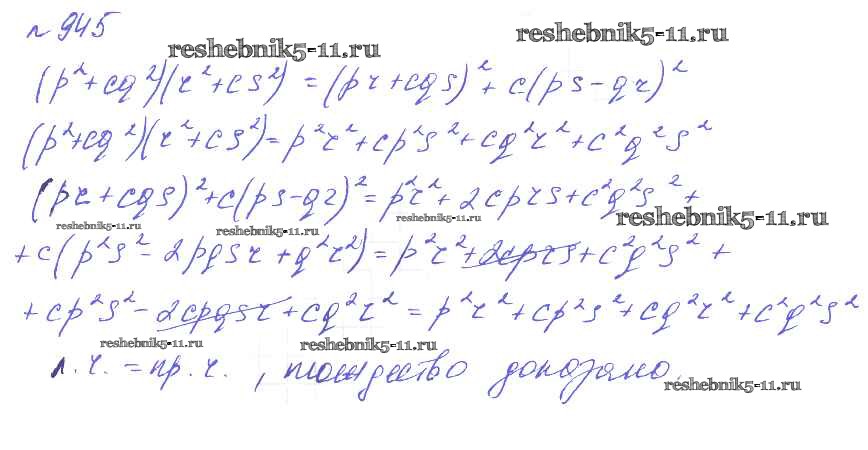 № 945
reshebnik5-11.ru reshebnik5-11.ru
(p²+cq²)(r²+cs²) = (pr+cqs)²+ c(ps-qr)²
(p²+cq²)(r²+cs²)= p²r²+cp²s²+cq²r²+c²q²s²
(pr+cqs)²+c(ps-qr)²= p²r²+ 2cprs+c²q²s²+
reshebnik5-11.ru reshebnik5-11.ru reshebnik5-11.ru reshebnik5-11.ru
+c(p²s²- 2pqsr+q²r²)= p²r²+2cprs+c²q²s²+
+cp²s²-2cpqsr+cq²r² = p²r²+cp²s²+cq²r²+c²q²s²
reshebnik5-11.ru reshebnik5-11.ru
л.ч. = пр.ч. , тождество доказано.
reshebnik5-11.ru